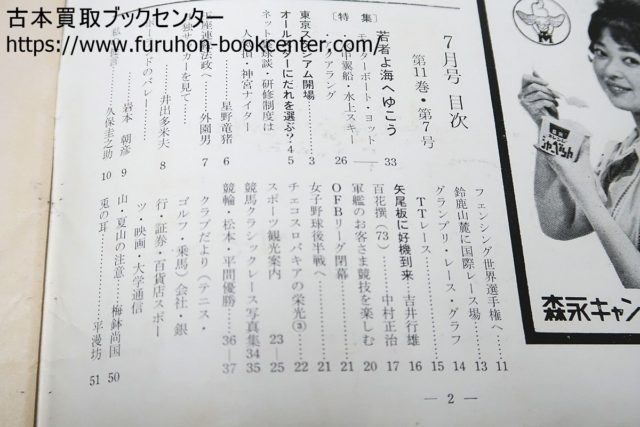 古本買取ブックセンター
https://www.furuhon-bookcenter.com/
7月号 目次
第11巻・第7号
[特集]
若者よ海へゆこう 33
モーターボート・ヨット・
水中翼船・水上スキー
26
東京スタジアム開場 3
オールスターにだれを選ぶ?・4 5
ネット球談・研修制度は
人人損・神宮ナイター
星野竜猪 6
外園男 7
を見て
井出多米夫 8
ドのバレー
岩本朝彦 9
久保圭之助 10
フェンシング世界選手権へ 11
鈴鹿山麓に国際レース場 13
グランプリ・レース・グラフ 14
TTレース 15
矢尾板に好機到来 吉井行雄 16
百花撰(73) 中村正治 17
軍艦のお客さま競技を楽しむ 20
OFBリーグ閉幕 21
女子野球後半戦へ 21
チェコスロバキアの栄光③ 22
スポーツ観光案内 23—25
競馬クラシックレース写真集 34 35
競輪・松本・平間優勝 36—37
クラブだより(テニス・
ゴルフ・乗馬)会社・銀
行・証券・百貨店スポー
ツ・映画・大学通信
山・夏山の注意 梅鉢尚国 50
兎の耳 平漫坊 51
— 2 —
森永
シャーベット
森永キャン